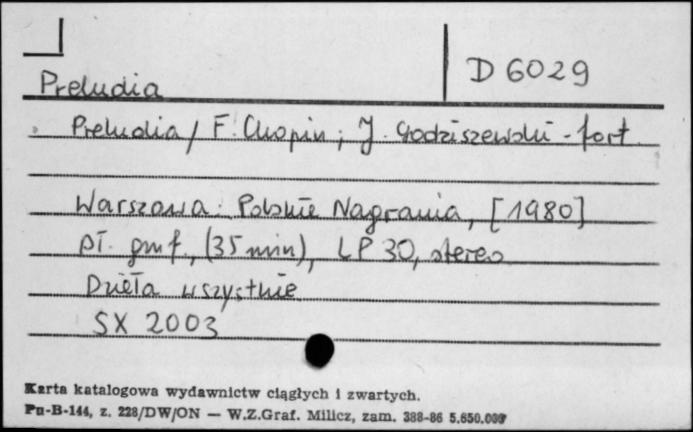 D 6029
Preludia
Preludia / F. Chopin ; J. Godziszewski - fort.
Warszawa : Polskie Nagrania, [1980]
pł. gmf., (35 min), LP 30, stereo
Dzieła wszystkie
SX 2003
Karta katalogowa wydawnictw ciągłych i zwartych.
Pu-B-144, z. 228/DW/ON — W.Z.Graf. Milicz, zam. 388-86 5.650.000